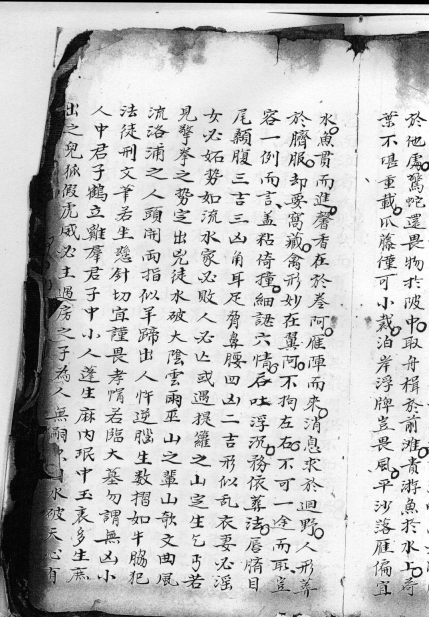 於他處驚蛇還畏物於陂中取舟楫於前滩貴游魚於水上荷
葉不堪重載瓜藤僅可小裁泊岸浮牌豈畏風平沙落雁偏宜
水魚貫而進馨香在於卷阿雁陣而來消息求於迴野人形葬
於臍服却要窩藏禽形妙在翼阿不拘左右不可一途而取豈
容一例而言盖粘倚撞細認六情吞吐浮沉務依葬法唇臍目
尾顙腹三吉三凶角耳足脅鼻腰四凶二吉形似乱衣妻必淫
女必妬势如流水家必敗人必亡或遇提籮之山定生乞丐若
見擎拳之势定出兇徒水破大陰雲雨巫山之輩山欹文曲風
流洛浦之人頭開両指似羊蹄出人忤逆腦生数摺如牛脇犯
法徒刑文筆若生懸針切宜謹畏孝帽若臨大墓勿謂無凶小
人中君子鶴立雞羣君子中小人蓬生麻内珉中玉表多生庶
出之兒狐假虎威必主過房之子為人無嗣水破天心有